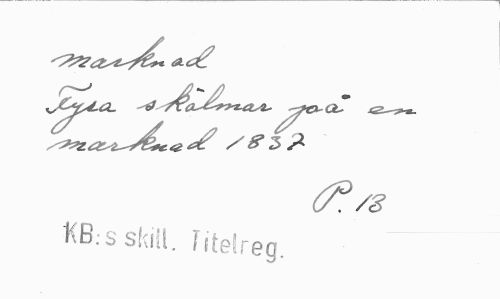 marknad
Fyra skälmar på en
marknad 1837
P. 13
KB:s skill. Titelreg.